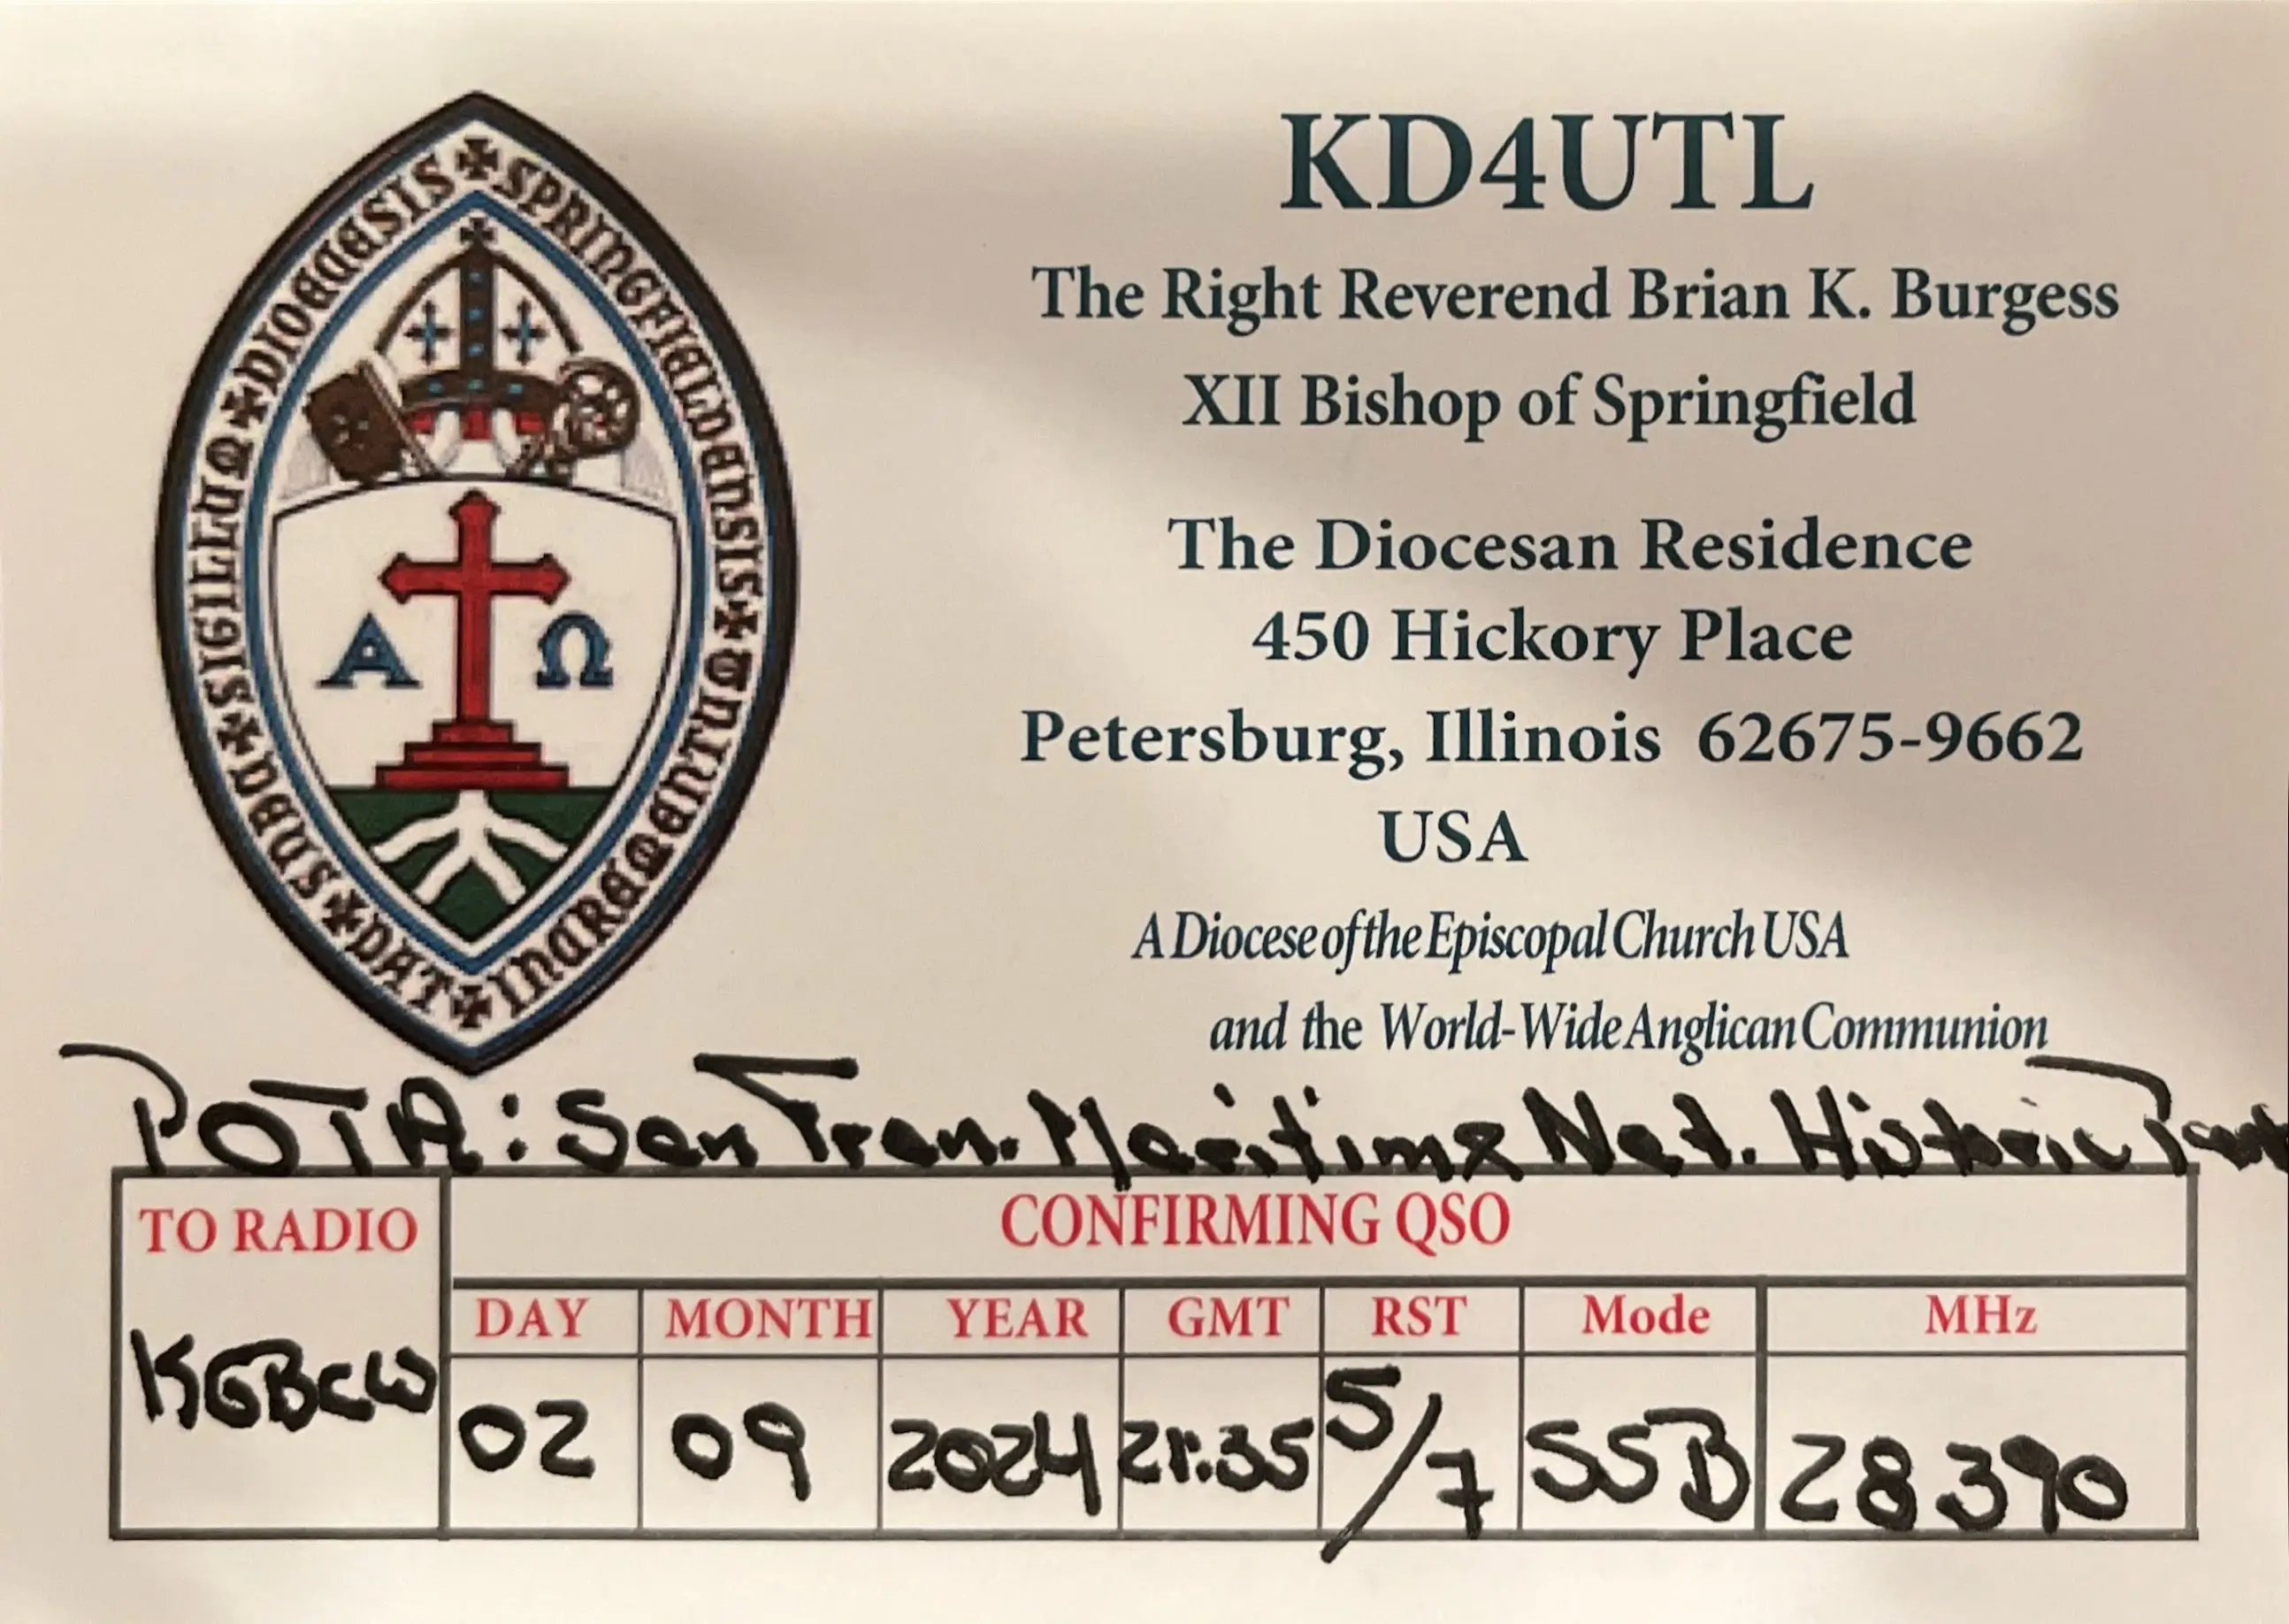 ✠ SPRINGFIELDENSIS ✠ SIGILLUM ✠ DIOECESIS
SUB ✠ DAT ✠ INCREMENTUM ✠
Α Ω
KD4UTL
The Right Reverend Brian K. Burgess
XII Bishop of Springfield
The Diocesan Residence
450 Hickory Place
Petersburg, Illinois 62675-9662
USA
A Diocese of the Episcopal Church USA
and the World-Wide Anglican Communion
POTA: San Fran. Maritime Nat. Historic Park
TO RADIO
K6BCW
CONFIRMING QSO
DAY MONTH YEAR GMT RST Mode MHz
02 09 2024 21:35 5/7 SSB 28390